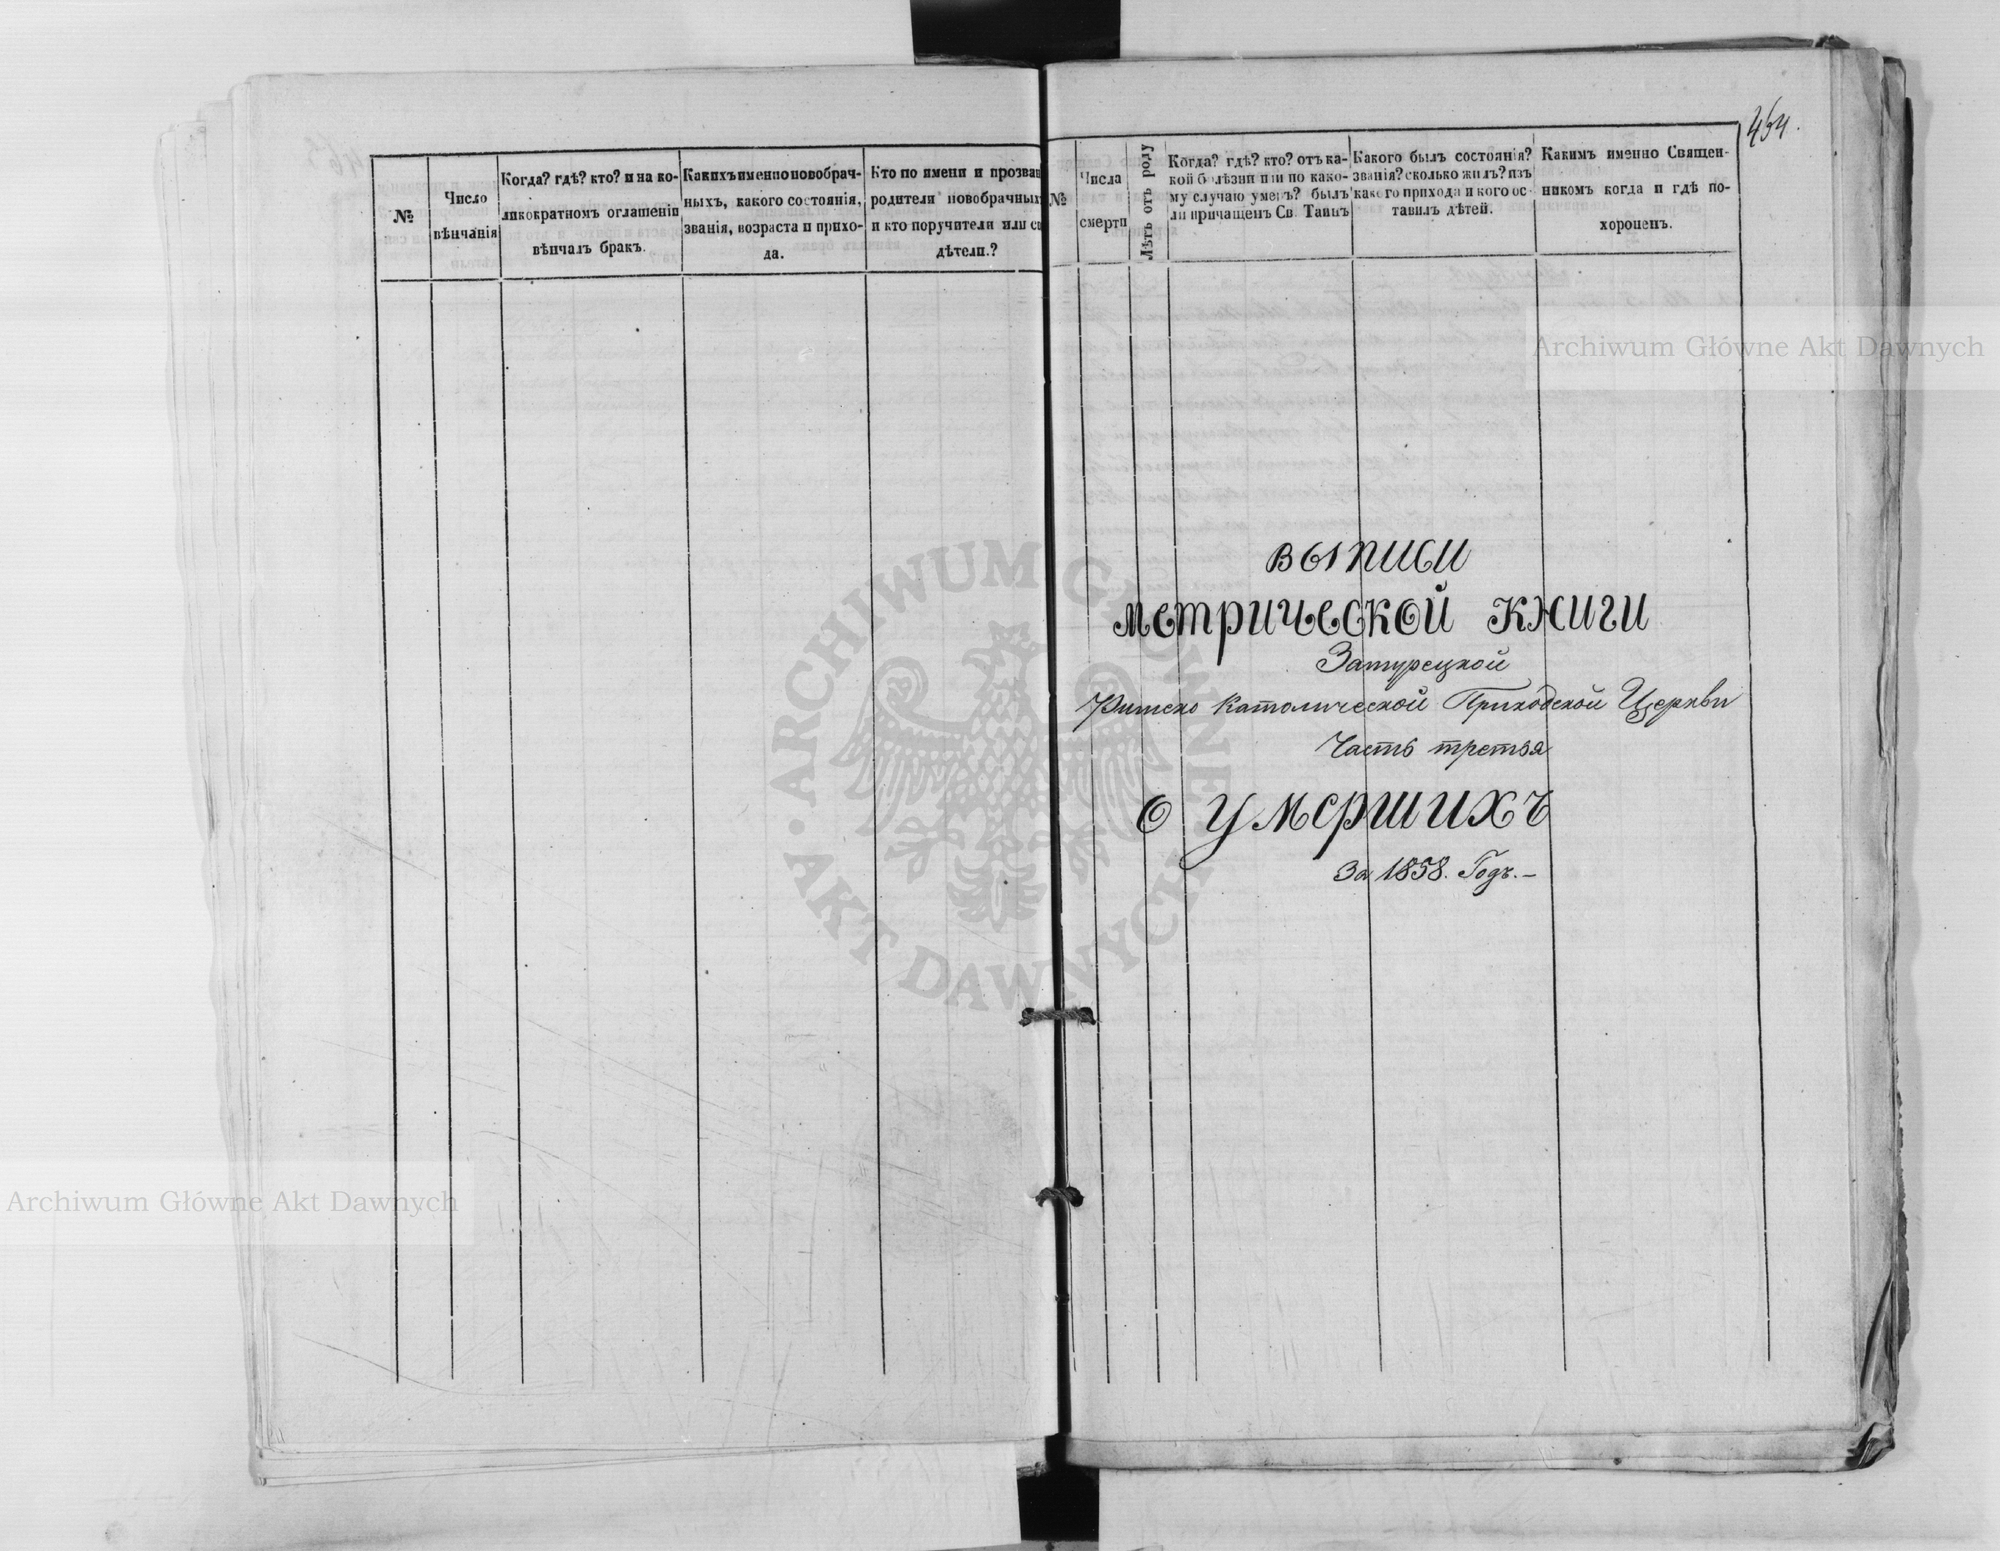 №
Число
вѣнчанія
Когда? гдѣ? кто? и на ко-
ликократномъ оглашеніи
вѣнчалъ бракъ.
Какихъ именно новобрач-
ныхъ, какого состоянія,
званія, возраста и прихо-
да.
Кто по имени и прозван
родители новобрачных
и кто поручители или св
дѣтели.?
№
Числа
смерти
Лѣтъ отъ роду
Когда? гдѣ? кто? отъ ка-
кой болѣзни или по како-
му случаю умеръ? былъ
ли причащенъ Св. Таинъ
Какого былъ состоянія?
званія? сколько жилъ? изъ
какого прихода и кого ос-
тавилъ дѣтей.
Какимъ именно Священ-
никомъ когда и гдѣ по-
хороненъ.
454.
Выписи
Метрической Книги
Затурецкой
Римско Католической Приходской Церкви
Часть третья
О Умершихъ
За 1858. Годъ.–
ARCHIWUM GŁÓWNE · AKT DAWNYCH ·
Archiwum Główne Akt Dawnych
Archiwum Główne Akt Dawnych